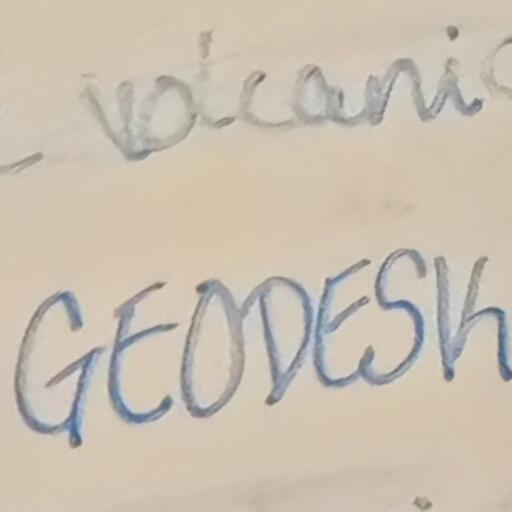 - volcanic
GEODESK